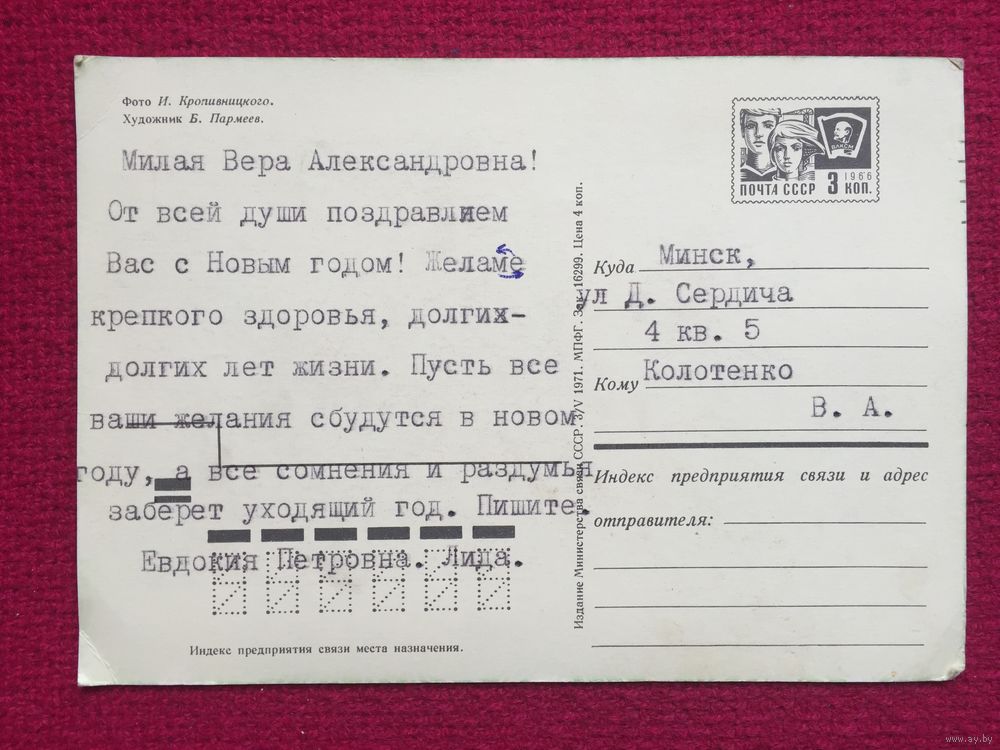 Фото И. Кропивницкого.
Художник Б. Пармеев.
Милая Вера Александровна!
От всей души поздравлием
Вас с Новым годом! Желаме
крепкого здоровья, долгих-
долгих лет жизни. Пусть все
ваши желания сбудутся в новом
году, а все сомнения и раздумья
заберет уходящий год. Пишите.
Евдокия Петровна. Лида.
Индекс предприятия связи места назначения.
Издание Министерства связи СССР. 3/V 1971. МПФГ. Зак. 16299. Цена 4 коп.
ВЛКСМ
1966
ПОЧТА СССР 3 КОП.
Куда Минск,
ул Д. Сердича
4 кв. 5
Кому Колотенко
В. А.
Индекс предприятия связи и адрес
отправителя:
www.ay.by